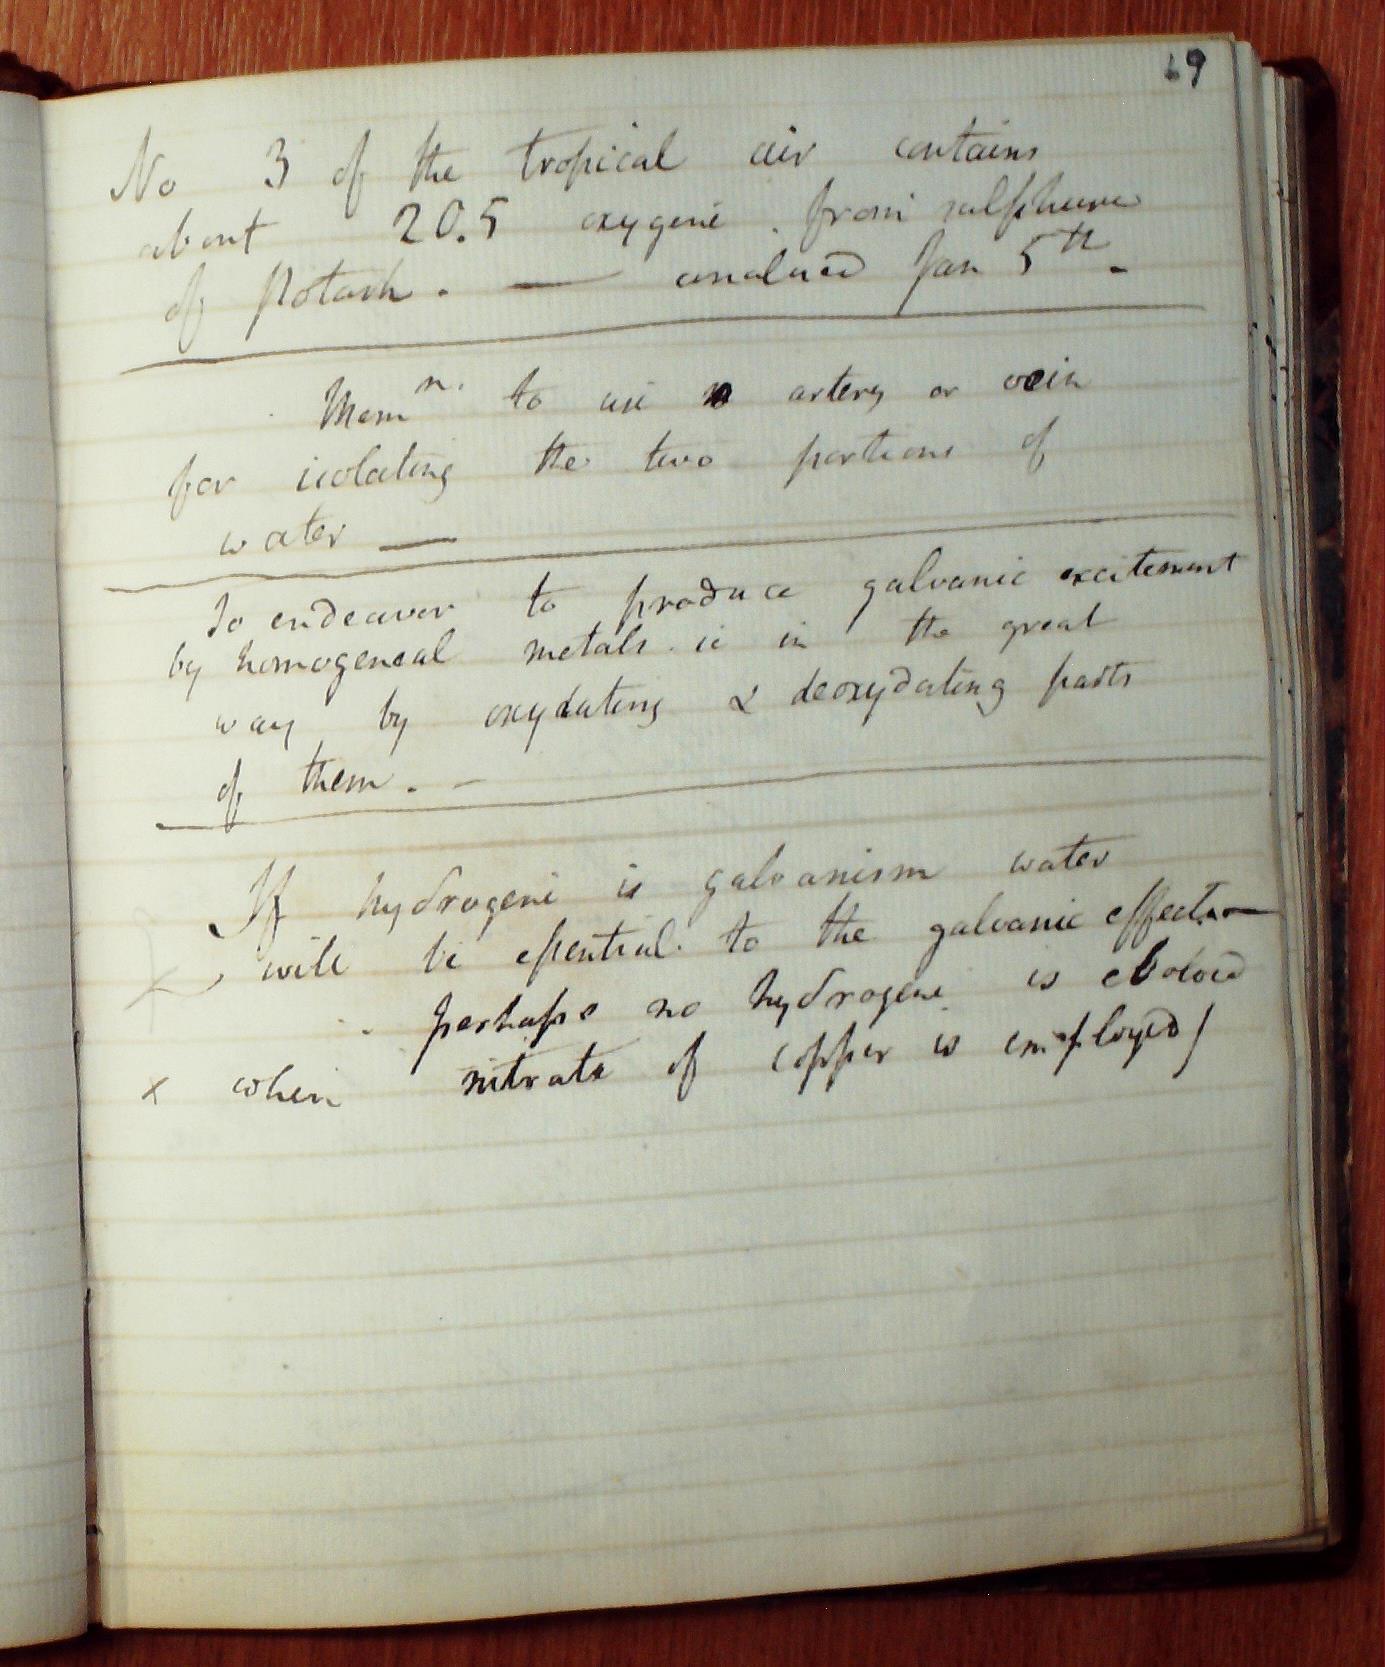 69
No 3 of the tropical air contains
about 20.5 oxygene. from sulphure
of Potash. — analused Jan 5th.
Mem n. to use artery or vein
for isolating the two portions of
water —
To endeavor to produce galvanic excitement
by homogeneal metals ie in the great
way by oxydating & deoxydating parts
of them. —
If hydrogene is galvanism water
will be essential to the galvanic effect —
perhaps no hydrogene is evolved
x when nitrate of copper is employed/